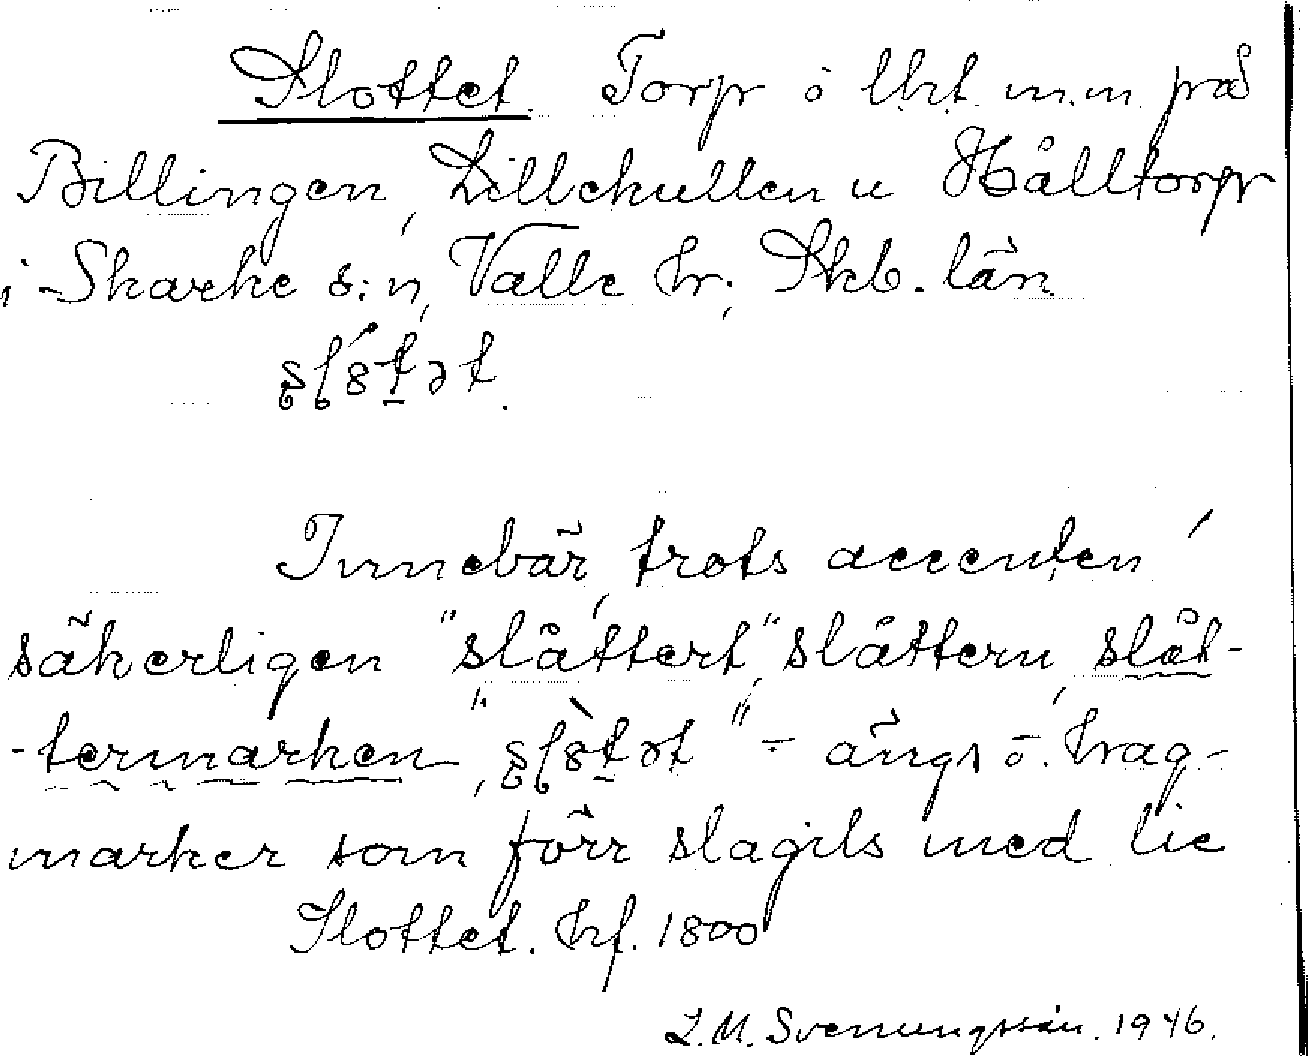 Slottet. Torp o. lht. m.m. på
Billingen, Lillekullen u Hålltorp
i Skarke s:n, Valle hr; Skb. län.
ʂɭót̠ət.
Innebär, trots accenten ́
säkerligen "slåttert", slåttern, slåt-
-termarken, "ʂɭòt̠ət" ÷ ängs o. hag-
marker som förr slagits med lie
Slottet. hf. 1800
L.M. Svenungsson. 1946.